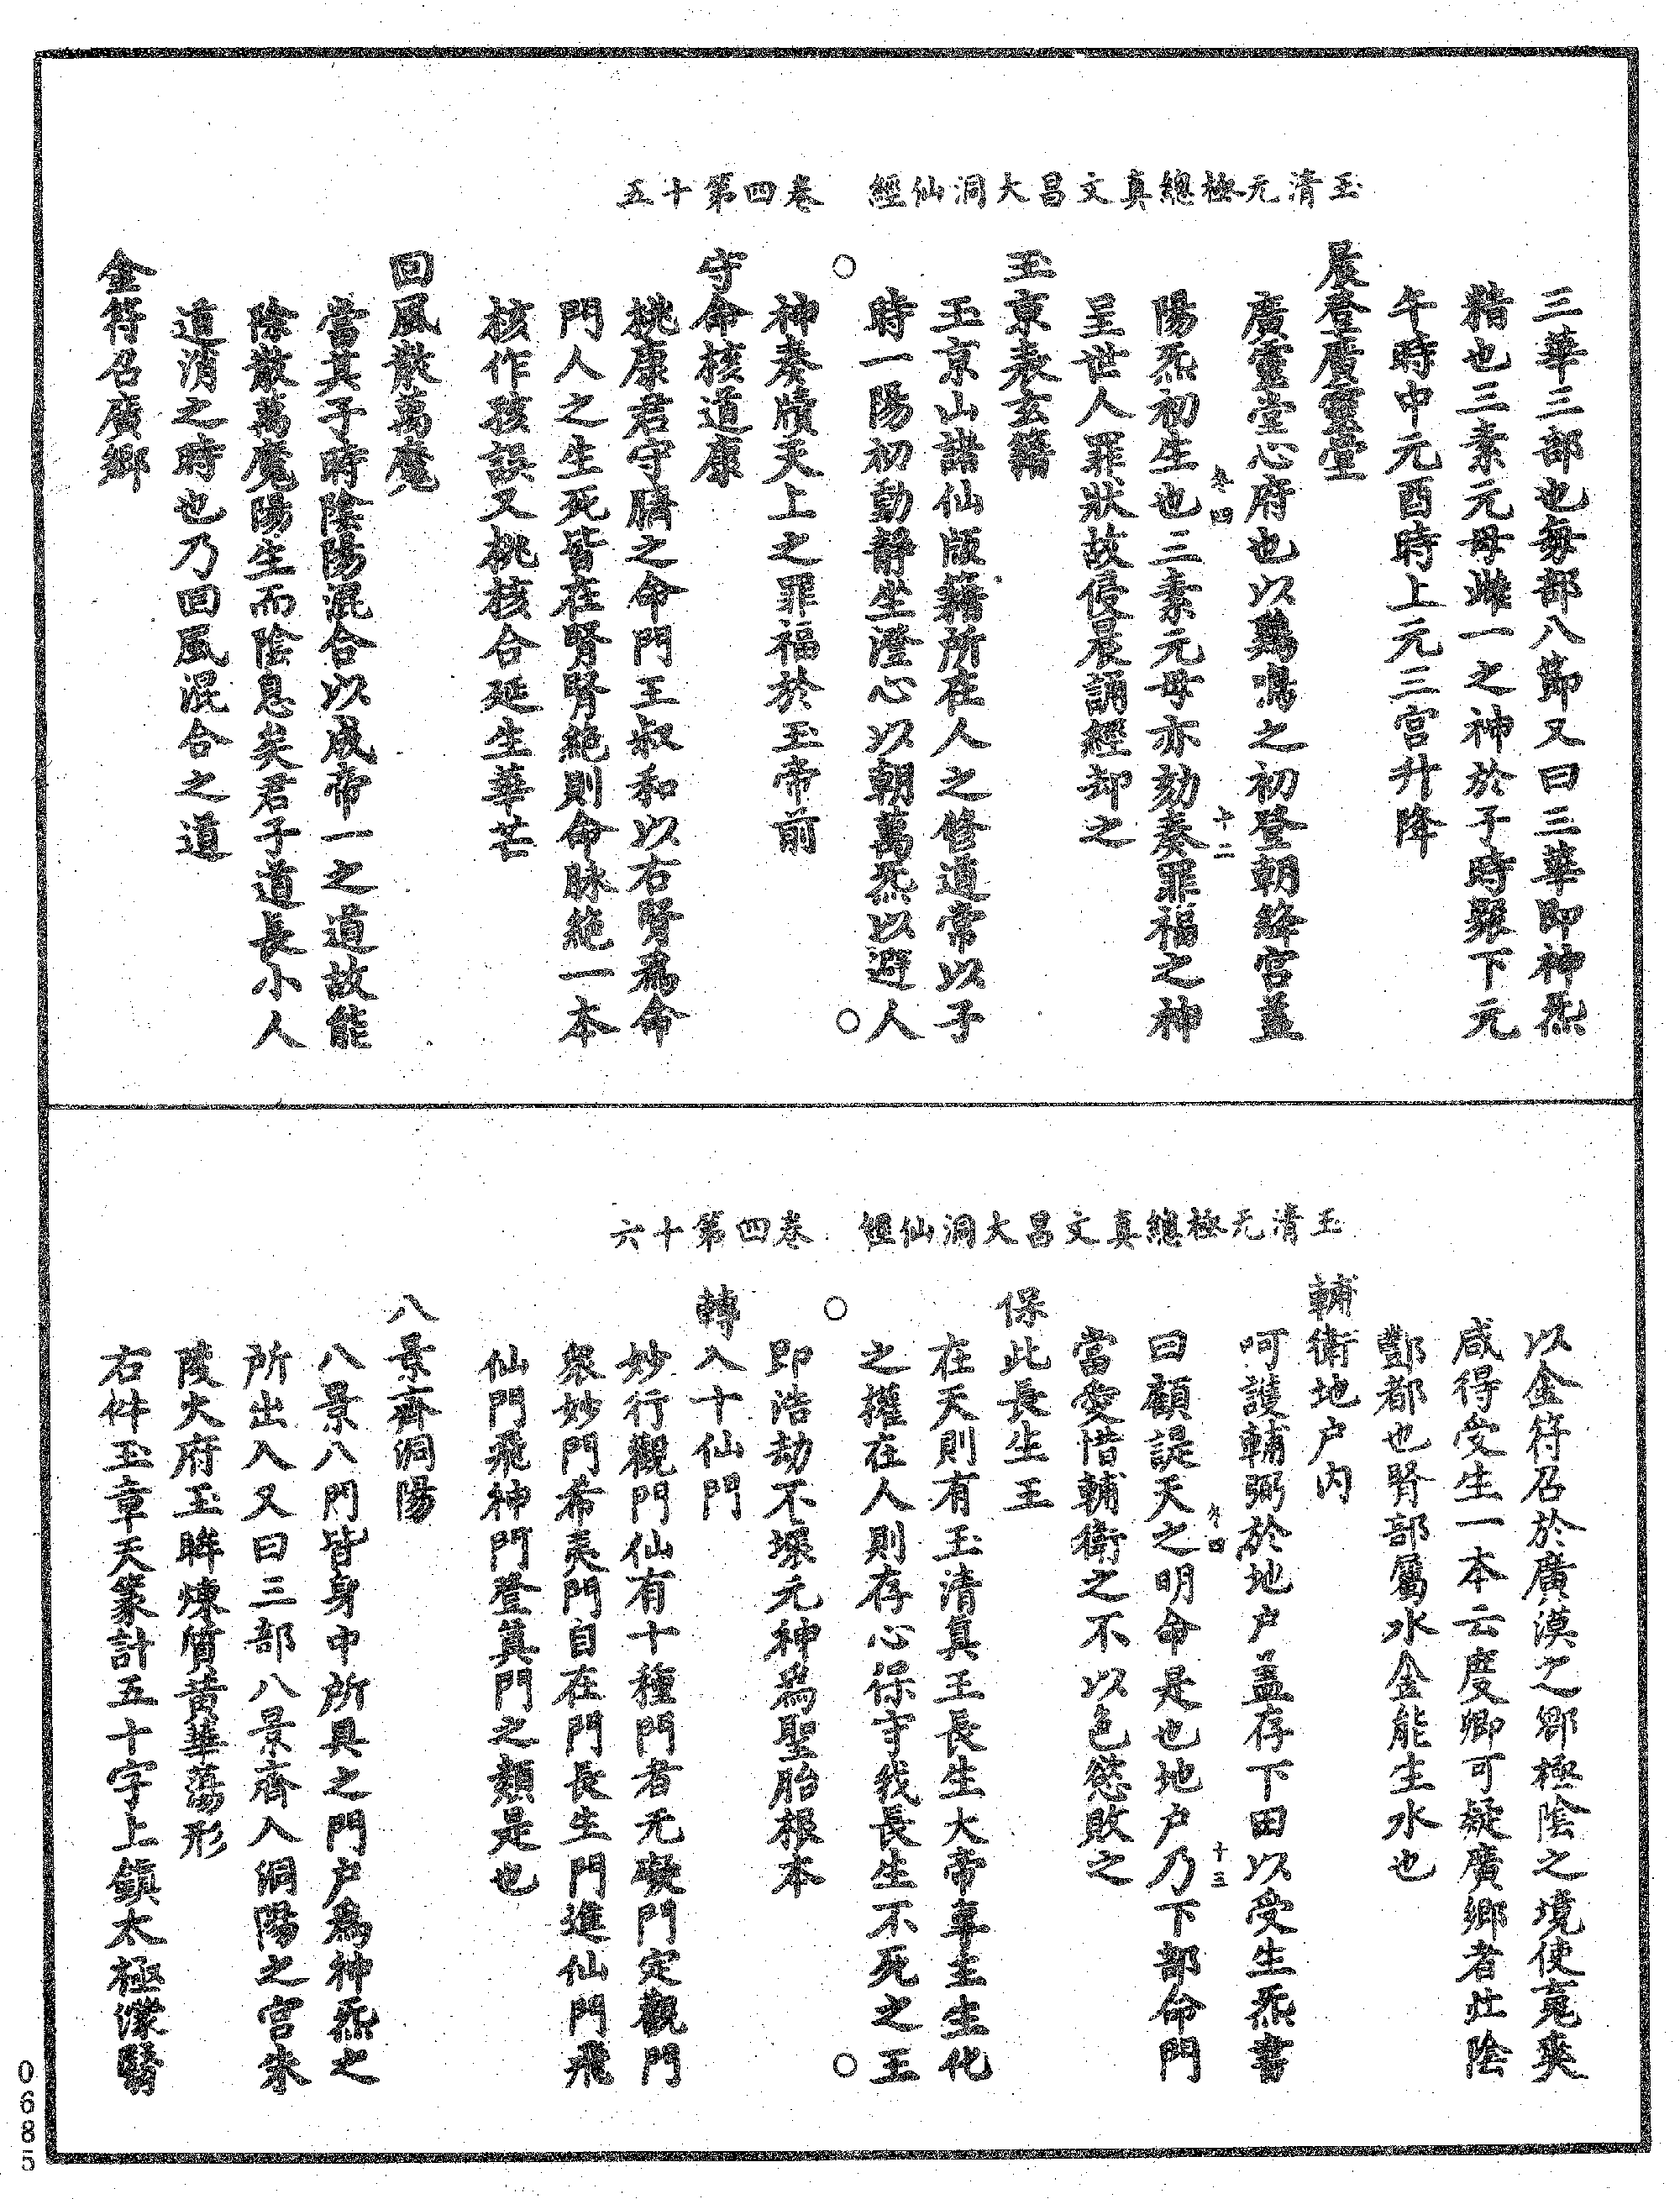 玉清元極總真文昌大洞仙經　卷四第十五
三華三部也每部八節又曰三華即神炁
精也三素元母雌一之神於子時躡下元
午時中元酉時上元三宮升降
晨登廣靈堂
廣靈堂心府也以鷄鳴之初登朝絳宮蓋
卷四　十二
陽炁初生也三素元母亦劾奏罪福之神
呈世人罪狀故侵晨誦經却之
玉京表玄籍
玉京山諸仙版籍所在人之修道常以子
時一陽初動靜坐澄心以朝萬炁以避人
○　○
神奏牘天上之罪福於玉帝前
守命核道康
桃康君守臍之命門王叔和以右腎爲命
門人之生死皆在腎腎絶則命脉絶一本
核作孩誤又桃核合延生華芒
回風散萬魔
當其子時陰陽混合以成帝一之道故能
除散萬魔陽生而陰息矣君子道長小人
道消之時也乃回風混合之道
金符召廣鄉
玉清元極總真文昌大洞仙經　卷四第十六
以金符召於廣漠之鄉極陰之境使冤爽
咸得受生一本云度卿可疑廣鄉者北陰
酆都也腎部屬水金能生水也
輔衛地户内
呵護輔弼於地户蓋存下田以受生炁書
卷四　十三
曰顧諟天之明命是也地户乃下部命門
當愛惜輔衛之不以色慾敗之
保此長生王
在天則有玉清真王長生大帝專主生化
之權在人則存心保守我長生不死之王
○　○
即浩劫不壞元神爲聖胎根本
轉入十仙門
妙行觀門仙有十種門者无礙門定觀門
衆妙門希夷門自在門長生門進仙門飛
仙門飛神門登真門之類是也
八景齊洞陽
八景八門皆身中所具之門户爲神炁之
所出入又曰三部八景齊入洞陽之宮朱
陵火府玉眸煉質黄華蕩形
右件玉章天篆計五十字上鎮太極濛翳
0685